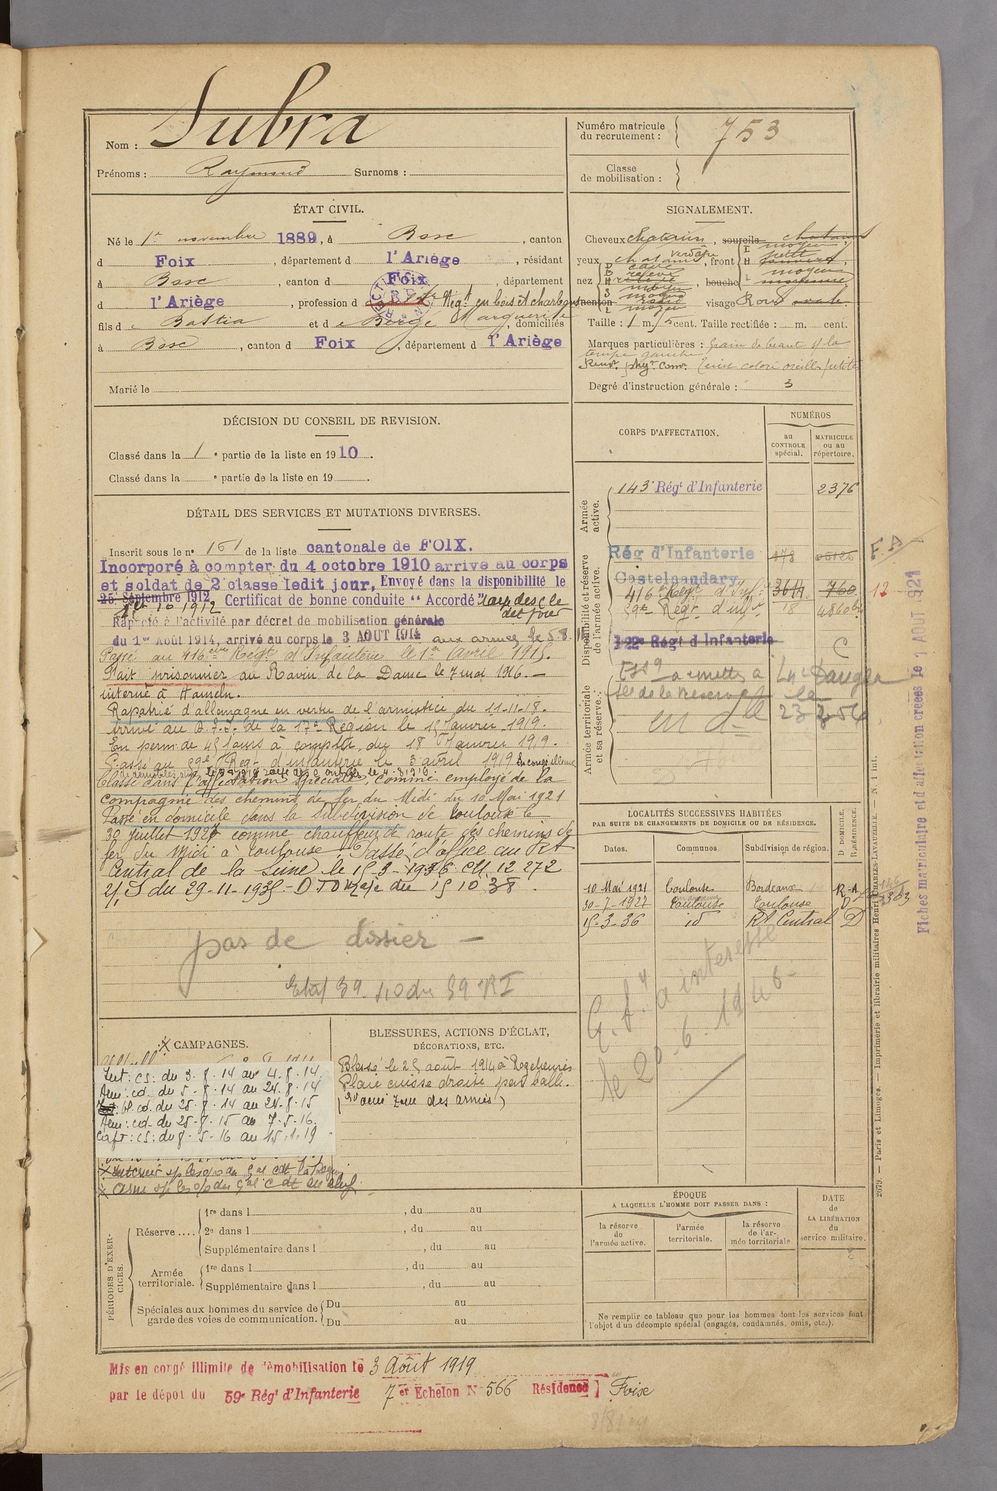 Nom : Subra
Prénoms : Raymond Surnoms :
Numéro matricule du recrutement : 753
Classe de mobilisation :
ÉTAT CIVIL.
Né le 1er novembre 1889, à Bosc, canton
d Foix, département d l'Ariège, résidant
à Bosc, canton d Foix, département
d l'Ariège, profession d Négt en bois et charbons
fils de Bastia et de Bergé Marguerite, domiciliés
à Bosc, canton d Foix, département d l'Ariège
Marié le
SIGNALEMENT.
Cheveux chatains, sourcils chatains
yeux chatain verdâtre, front
nez bouche
menton visage Rond ovale.
Taille : 1 m. cent. Taille rectifiée : m. cent.
Marques particulières : Grain de beauté à la
tempe gauche
Degré d'instruction générale : 3
DÉCISION DU CONSEIL DE REVISION.
Classé dans la 1e partie de la liste en 1910.
Classé dans la e partie de la liste en 19
DÉTAIL DES SERVICES ET MUTATIONS DIVERSES.
Inscrit sous le no 161 de la liste cantonale de FOIX.
Incorporé à compter du 4 octobre 1910 arrivé au corps
et soldat de 2e classe ledit jour, Envoyé dans la disponibilité le
25 Septembre 1912 Certificat de bonne conduite "Accordé"
Rappelé à l'activité par décret de mobilisation générale
du 1er Août 1914, arrivé au corps le 3 AOUT 1914 aux armées le 5 8
Passé au 416ème Régt d'Infanterie le 1er avril 1915.
Fait prisonnier au Ravin de la Dame le 7 mai 1916. —
interné à Hameln.
Rapatrié d'allemagne en vertu de l'armistice du 11-11-18.
arrivé au D.G.I. de la 17e Région le 15 Janvier 1919.
En perm. de 45 jours à compter du 18 Janvier 1919.
Passé au 59e Régt d'infanterie le 3 avril 1919
Classé dans l'affectation spéciale, comme employé de la
Compagnie des chemins de fer du Midi du 10 Mai 1921
Passé en domicile dans la subdivision de Toulouse le
30 juillet 1927 comme chauffeur de route des chemins de
fer du Midi à Toulouse. Passé d'office au Rt
Central de la Seine le 15-3-1936 CM 12 272
2/D du 29-11-1935 - D
pas de dossier —
CORPS D'AFFECTATION.
NUMÉROS
au CONTROLE spécial.
MATRICULE ou au répertoire.
Armée active.
143e Régt d'Infanterie 2376
Disponibilité et réserve de l'armée active.
Rég d'Infanterie
Castelnaudary
416e Régt d'Inf. 3614 760
59e Régt d'Inf 18
122e Régt d'Infanterie
Armée territoriale et sa réserve.
C
12
Fiches matriculaire et d'affectation créées le 1 AOUT 1921
LOCALITÉS SUCCESSIVES HABITÉES
PAR SUITE DE CHANGEMENTS DE DOMICILE OU DE RÉSIDENCE.
Dates. Communes. Subdivision de région. D. DOMICILE. R. RÉSIDENCE.
10 Mai 1921 Toulouse Bordeaux R
30-7-1927 Toulouse Toulouse D
15-3-36 id Rt Central D
G.F. à intéressé
le 20-6-1946
CAMPAGNES.
Int : cs : du 3-8-14 au 4.8.14
Arm : cd. du 5-8-14 au 24.8.14
Int : bl. cd. du 25-8-14 au 24-8-15
Arm : cd. du 25-8-15 au 7-5-16
Capt : cs : du 8-5-16 au 15.1.19
BLESSURES, ACTIONS D'ÉCLAT,
DÉCORATIONS, ETC.
Blessé le 25 août 1914 à
Plaie cuisse droite par balle.
PÉRIODES D'EXERCICES.
Réserve....
1re dans l , du au
2e dans l , du au
Supplémentaire dans l , du au
Armée territoriale.
1re dans l , du au
Supplémentaire dans l , du au
Spéciales aux hommes du service de garde des voies de communication.
Du au
Du au
ÉPOQUE
A LAQUELLE L'HOMME DOIT PASSER DANS :
la réserve de l'armée active.
l'armée territoriale.
la réserve de l'armée territoriale
DATE DE LA LIBÉRATION du service militaire.
Ne remplir ce tableau que pour les hommes dont les services font
l'objet d'un décompte spécial (engagés, condamnés, omis, etc.).
2079. — Paris et Limoges. — Imprimerie et librairie militaires Henri CHARLES-LAVAUZELLE. — N. 1 int.
Mis en congé illimité de démobilisation le 3 Août 1919
par le dépôt du 59e Régt d'Infanterie 7er Echelon No 566 Résidence Foix